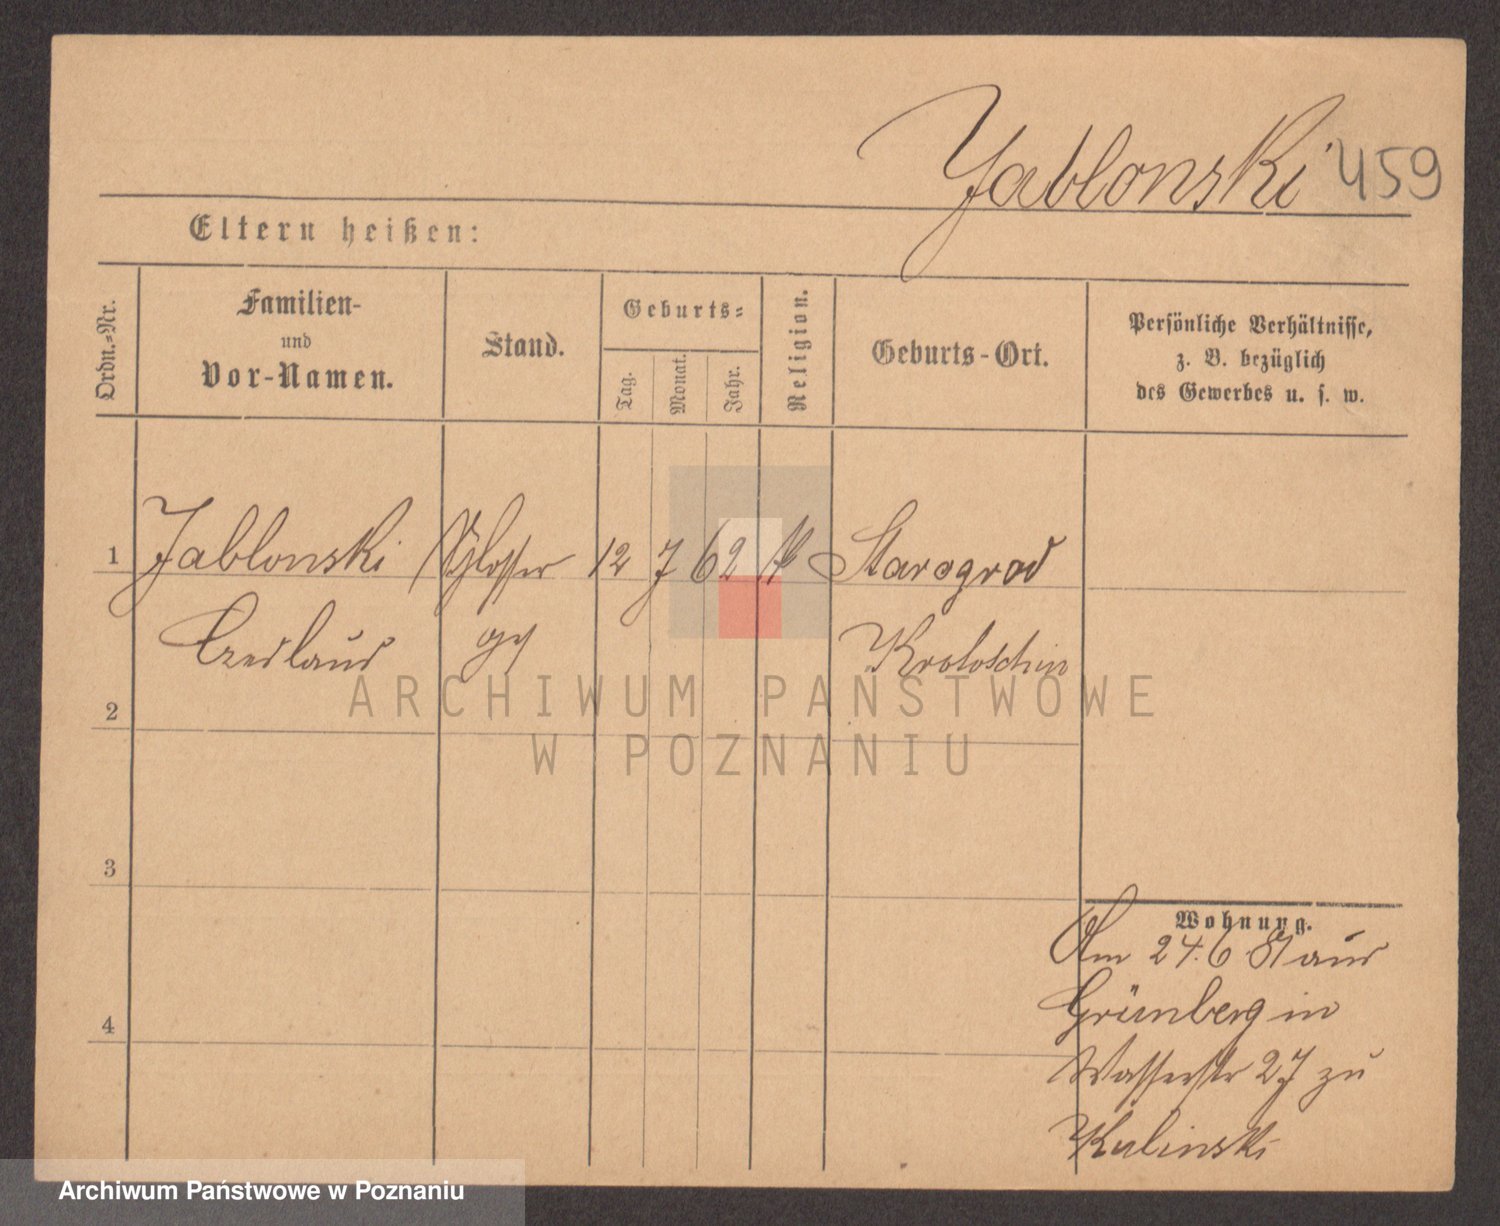 Jablonski 459
Eltern heißen:
Ordn.-Nr.
Familien-
und
Vor-Namen.
Stand.
Geburts-
Tag.
Monat.
Jahr.
Religion.
Geburts-Ort.
Persönliche Verhältnisse,
z. B. bezüglich
des Gewerbes u. s. w.
1 Jablonski Schlosser 12 7 62 k Starogrod
Czeslaus Krotoschin
2
3
4
Wohnung.
Am 24.6 81 aus
Grünberg in
Wasserstr 27 zu
Kulinski
ARCHIWUM PAŃSTWOWE
W POZNANIU
Archiwum Państwowe w Poznaniu